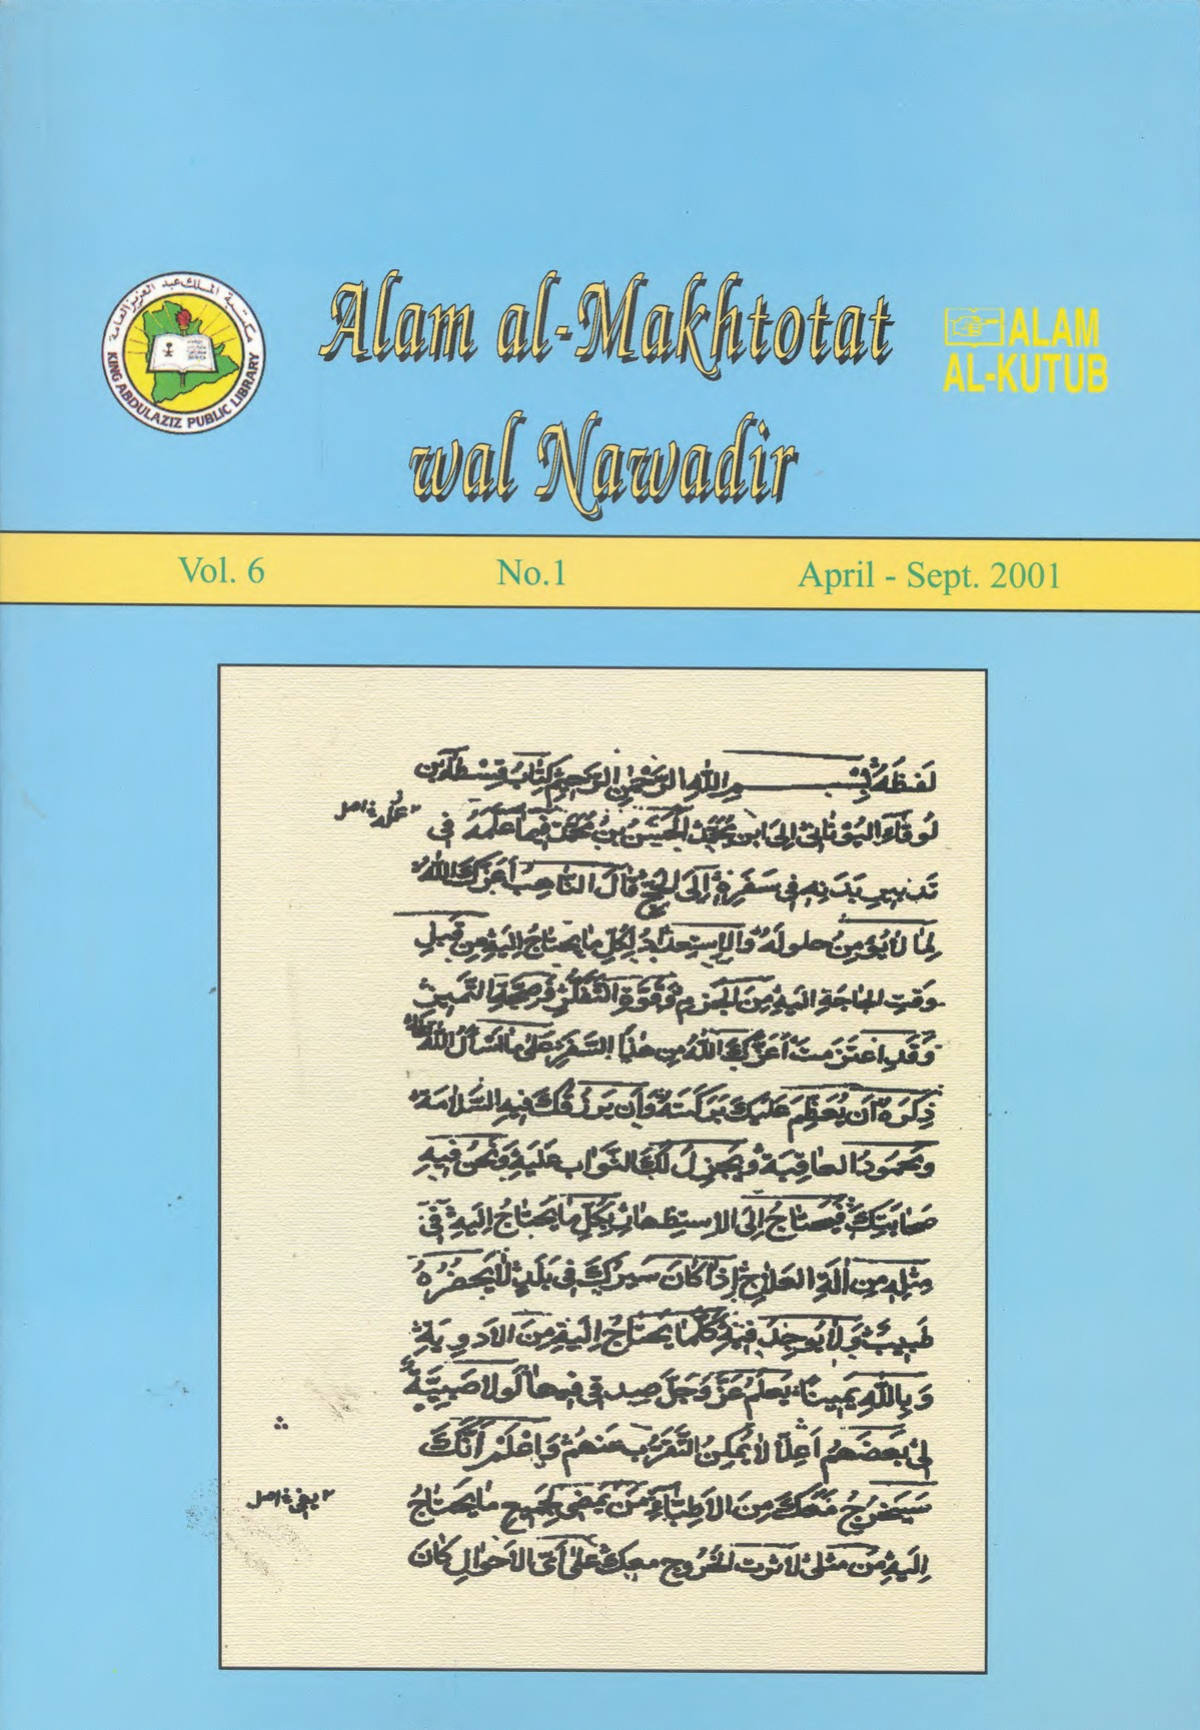 مكتبة الملك عبد العزيز العامة
KING ABDULAZIZ PUBLIC LIBRARY
Alam al-Makhtotat
wal Nawadir
ALAM
AL-KUTUB
Vol. 6 No.1 April - Sept. 2001
بسم الله الرحمن الرحيم كتاب قسطا بن
لوقاء اليوناني إلى ابن محمد الحسن بن محمد فيما علمه في
تدبير بدنه في سفره إلى الحج قال التاهب أعزك الله
لما لا يؤمن حلوله والاستعداد لكل ما يحتاج إليه من قبل
وقت الحاجة إليه من الحزم وقوة التفكر وصحة التمييز
وقد اعتزمت أعزك الله من هذا السفر على ما اسأل الله
ذكره أن يعظم عليك بركته وأن يرزقك فيه السلامة
ومحمود العاقبة ويجزل لك الثواب عليه ونحن فيه
إلى الاستظهار بكل ما يحتاج إليه في
مثله من آلة العلاج إذا كان سيرك في بلد لا يحضره
طبيب ولا يوجد فيه كلما يحتاج إليه من الأدوية
وبالله يمينا يعلم عز وجل صدقي فيها لولا صبية
لي بعضهم لا يمكن عنهم واعلم أنك
سيخرج معك من الأطباء من بجميع ما يحتاج
إليه من مثلي الخروج معك على أي الأحوال كان